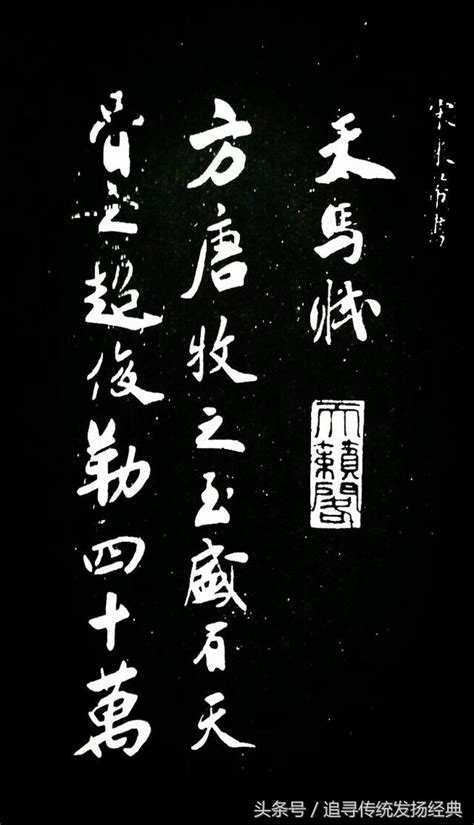 宋米芾書
天馬賦
天籟閣
方唐牧之至盛有天
骨之超俊勒四十萬
头条号／追寻传统发扬经典